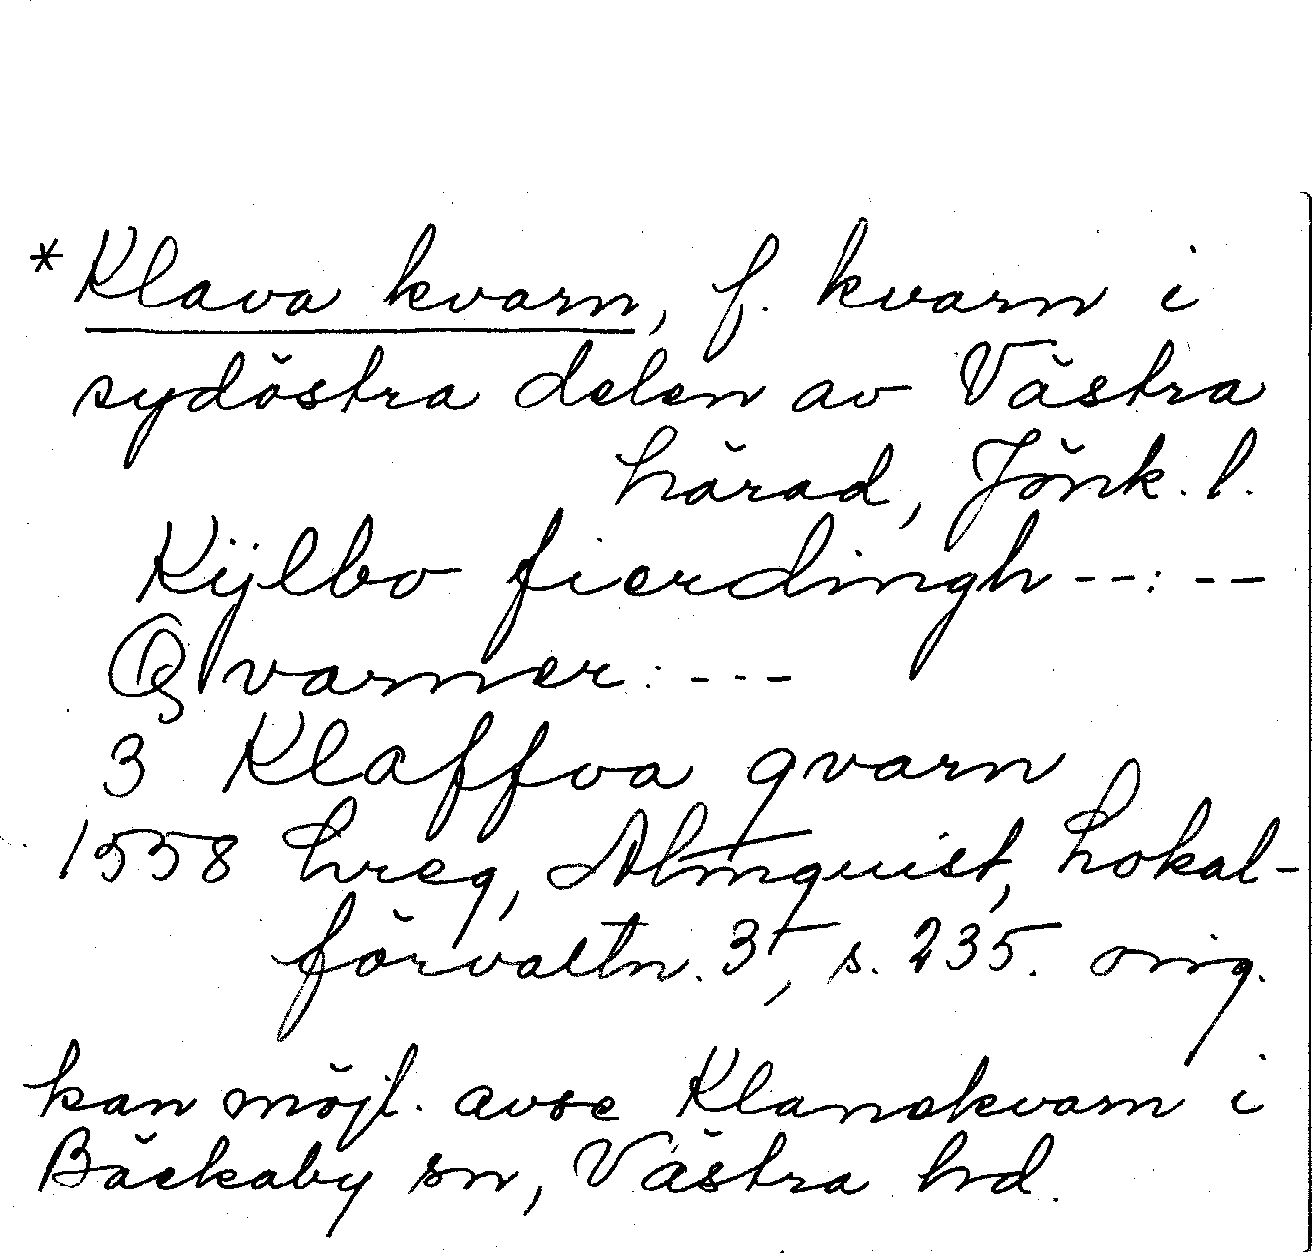 *Klava kvarn, f. kvarn i
sydöstra delen av Västra
härad, Jönk. l.
Kÿlbo fierdingh --:--
Qvarner: ---
3 Klaffva qvarn
1558 hreg, Almquist, Lokal-
förvaltn. 3, s. 235. orig.
kan möjl. avse Klanekvarn i
Bäckaby sn, Västra hd.